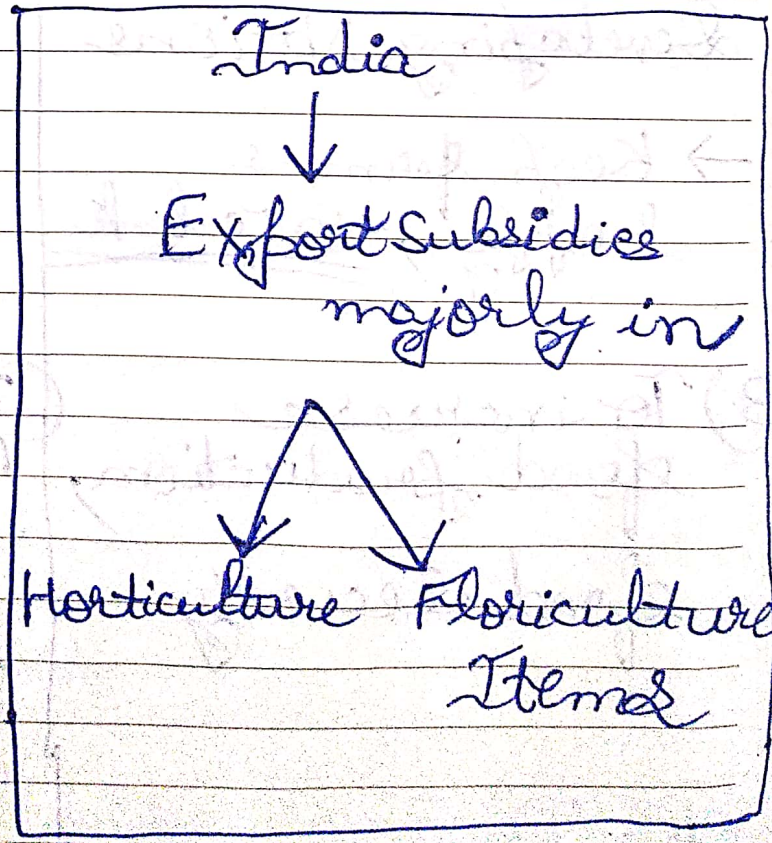 India
Export Subsidies
majorly in
Horticulture Floriculture
Items